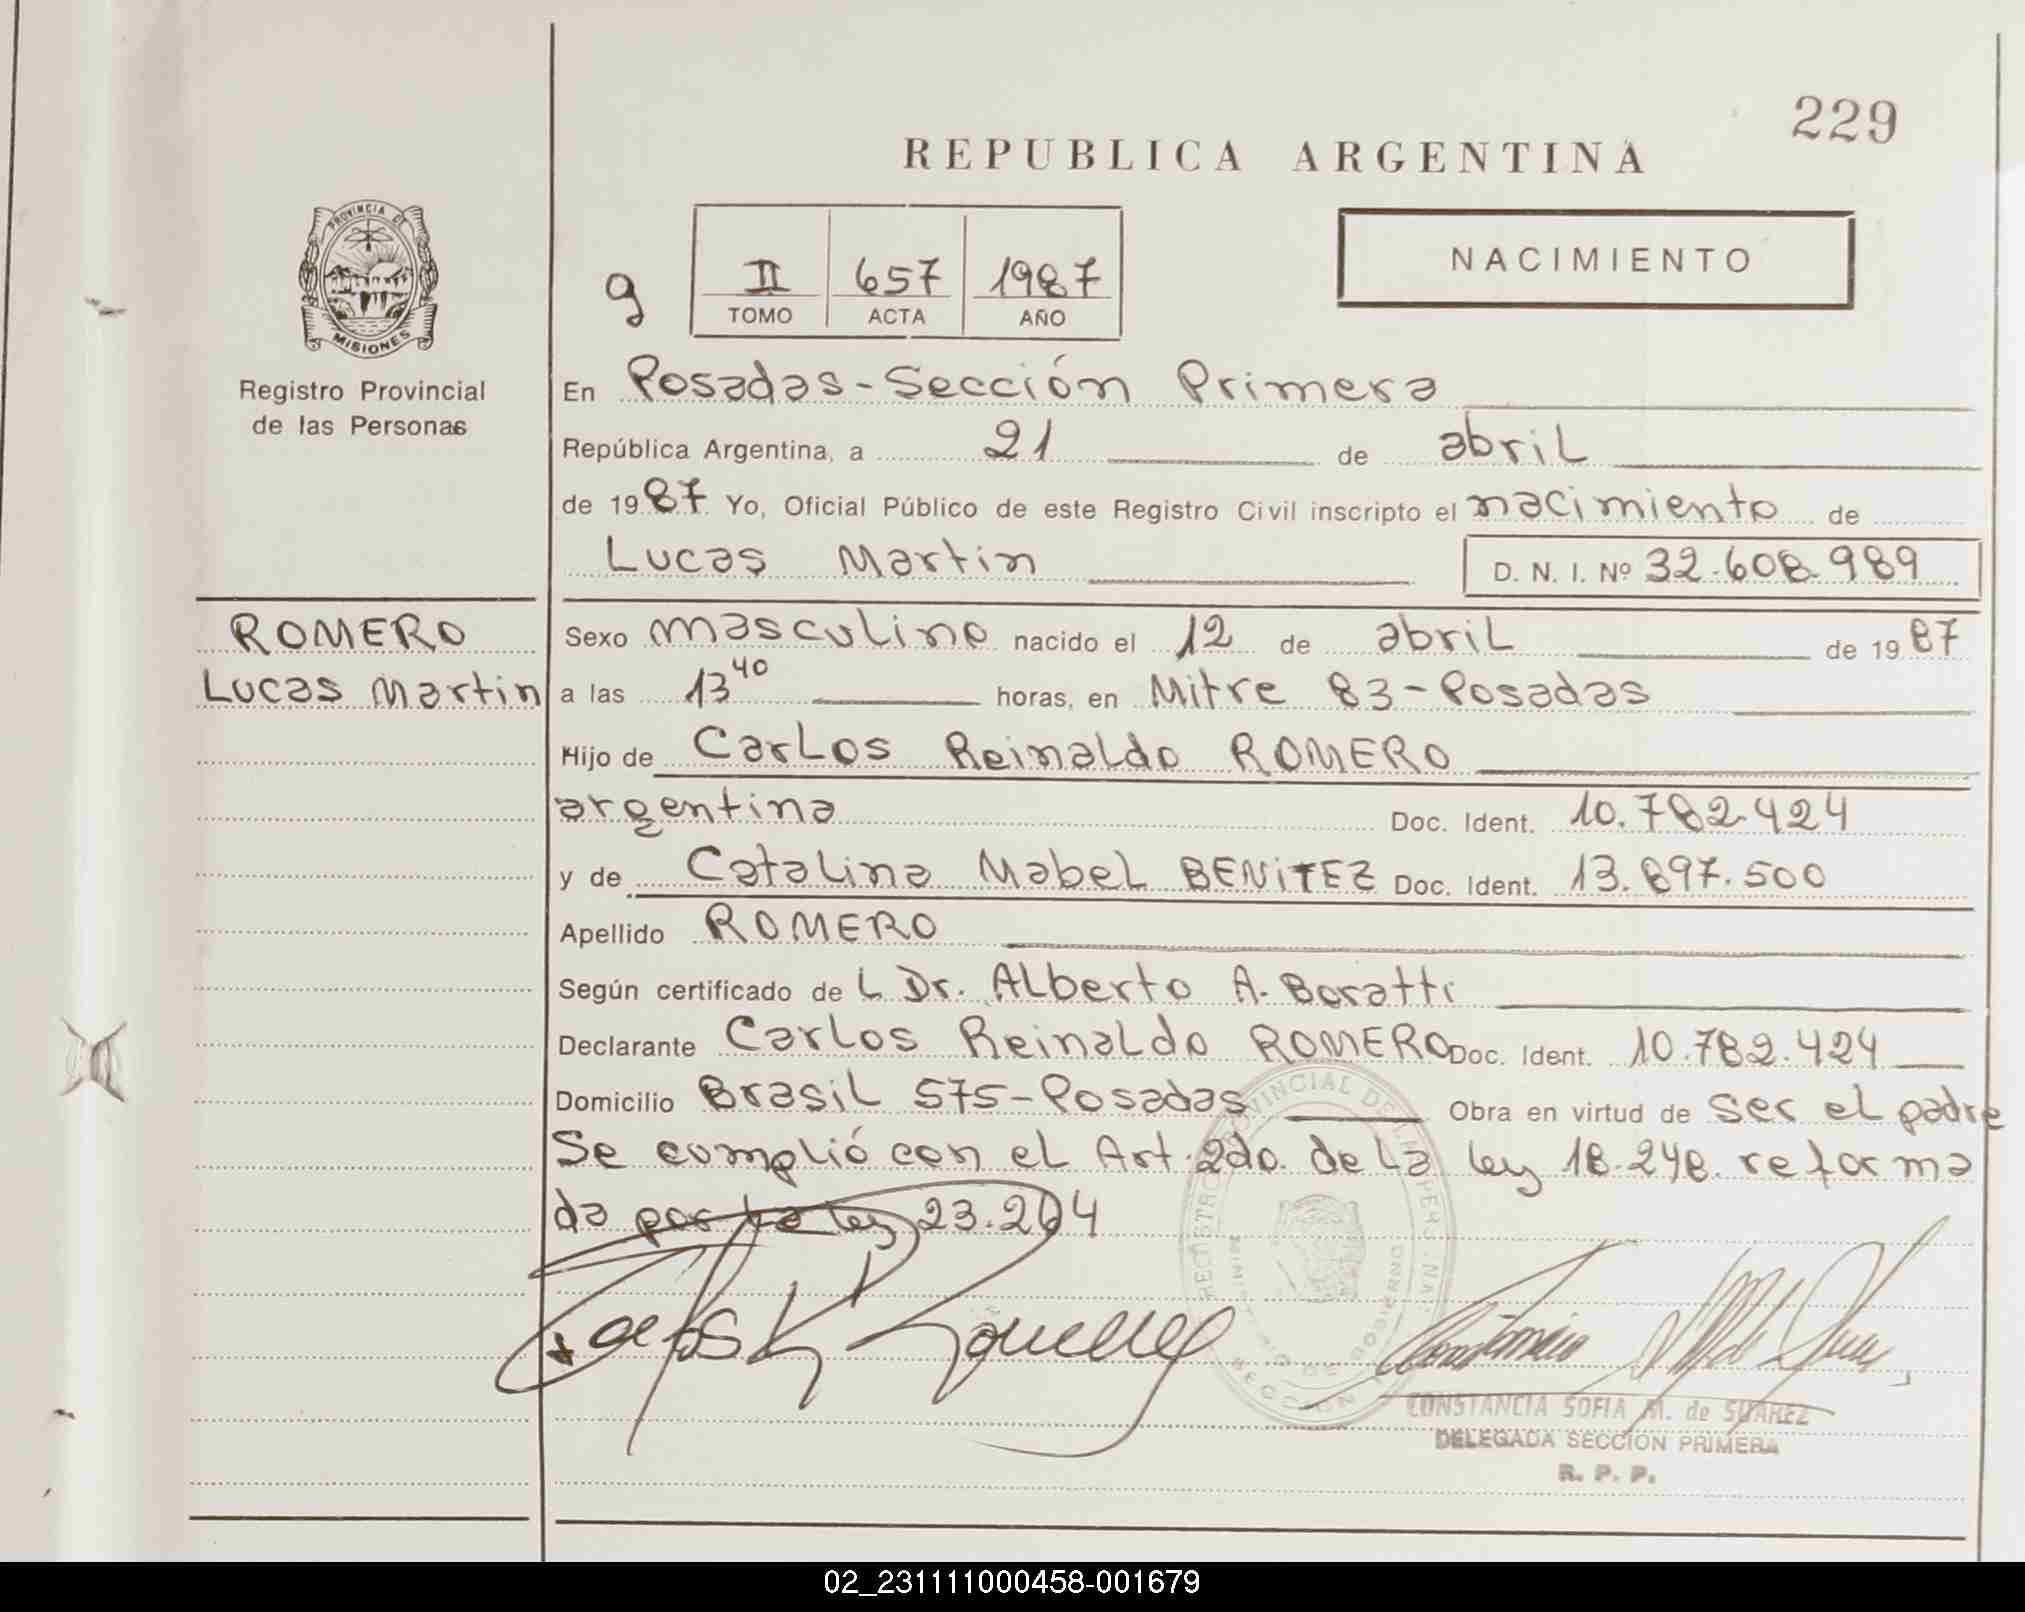 229
REPUBLICA ARGENTINA
PROVINCIA DE
MISIONES
Registro Provincial
de las Personas
g
II 657 1987
TOMO ACTA AÑO
NACIMIENTO
En Posadas-Sección Primera
República Argentina, a 21 de abril
de 1987 Yo, Oficial Público de este Registro Civil inscripto el nacimiento de
Lucas Martin D. N. I. Nº 32.608.989
ROMERO
Lucas Martin
Sexo masculino nacido el 12 de abril de 1987
a las 13 40 horas, en Mitre 83-Posadas
Hijo de Carlos Reinaldo ROMERO
argentina Doc. Ident. 10.782.424
y de Catalina Mabel BENITEZ Doc. Ident. 13.897.500
Apellido ROMERO
Según certificado de L Dr. Alberto A. Boratti
Declarante Carlos Reinaldo ROMERO Doc. Ident. 10.782.424
Domicilio Brasil 575-Posadas Obra en virtud de ser el padre
Se complió con el Art. 2do. de la ley 18.248. reforma
da por la ley 23.264
CONSTANCIA SOFIA M. de SUAREZ
DELEGADA SECCION PRIMERA
R. P. P.
02_231111000458-001679